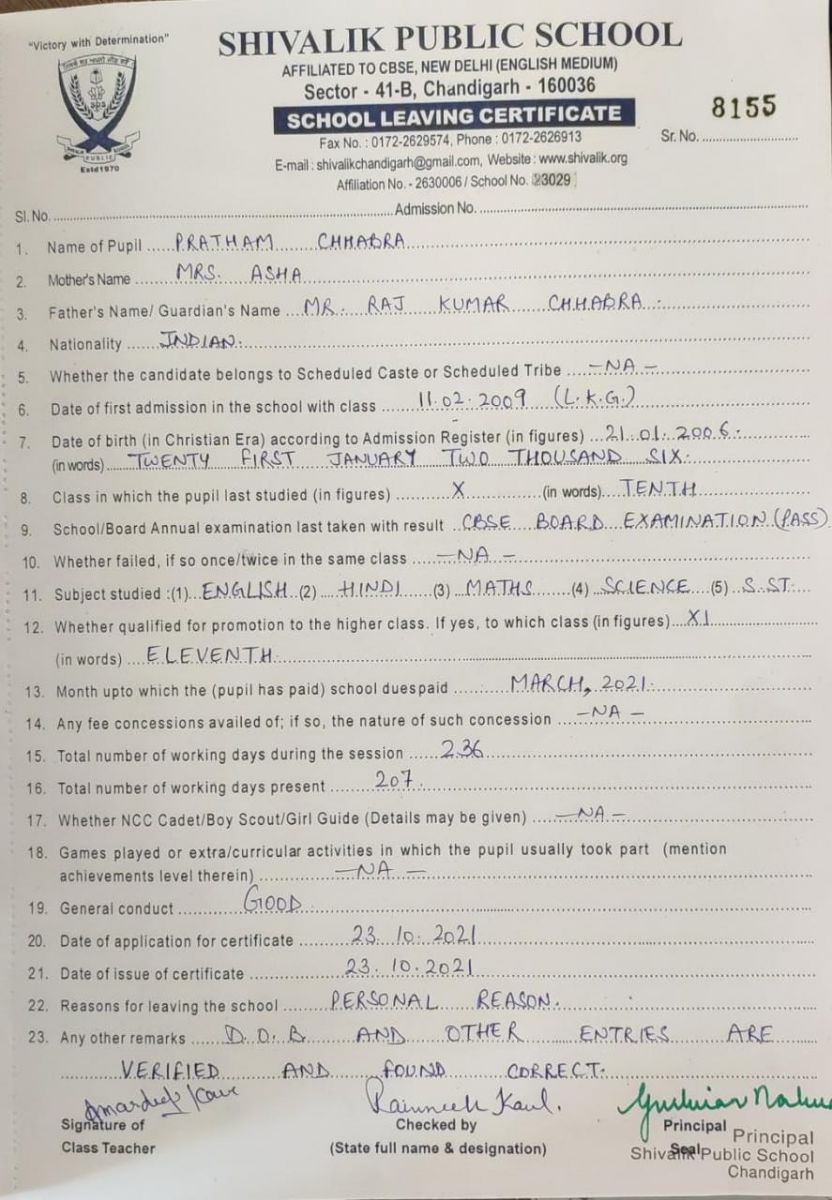 "Victory with Determination"
SHIVALIK PUBLIC SCHOOL
AFFILIATED TO CBSE, NEW DELHI (ENGLISH MEDIUM)
Sector - 41-B, Chandigarh - 160036
SCHOOL LEAVING CERTIFICATE
8155
Fax No. : 0172-2629574, Phone : 0172-2626913
Sr. No.
E-mail : shivalikchandigarh@gmail.com, Website : www.shivalik.org
Affiliation No. - 2630006 / School No. 23029
PUBLIC
Estd 1970
Sl. No. Admission No.
1. Name of Pupil PRATHAM CHHABRA
2. Mother's Name MRS. ASHA
3. Father's Name/ Guardian's Name MR. RAJ KUMAR CHHABRA.
4. Nationality INDIAN.
5. Whether the candidate belongs to Scheduled Caste or Scheduled Tribe -NA-
6. Date of first admission in the school with class 11.02.2009 (L.K.G.)
7. Date of birth (in Christian Era) according to Admission Register (in figures) 21.01.2006.
(in words) TWENTY FIRST JANUARY TWO THOUSAND SIX.
8. Class in which the pupil last studied (in figures) X (in words) TENTH
9. School/Board Annual examination last taken with result CBSE BOARD EXAMINATION (PASS)
10. Whether failed, if so once/twice in the same class -NA-
11. Subject studied :(1) ENGLISH (2) HINDI (3) MATHS (4) SCIENCE (5) S.ST.
12. Whether qualified for promotion to the higher class. If yes, to which class (in figures) XI
(in words) ELEVENTH.
13. Month upto which the (pupil has paid) school duespaid MARCH, 2021.
14. Any fee concessions availed of; if so, the nature of such concession -NA-
15. Total number of working days during the session 236
16. Total number of working days present 207.
17. Whether NCC Cadet/Boy Scout/Girl Guide (Details may be given) -NA-
18. Games played or extra/curricular activities in which the pupil usually took part (mention
achievements level therein) -NA-
19. General conduct GOOD
20. Date of application for certificate 23.10.2021
21. Date of issue of certificate 23.10.2021
22. Reasons for leaving the school PERSONAL REASON.
23. Any other remarks D.O.B AND OTHER ENTRIES ARE
VERIFIED AND FOUND CORRECT.
Amardeep Kaur Kaul.
Signature of Checked by Principal
Class Teacher (State full name & designation) Seal
Principal
Shivalik Public School
Chandigarh